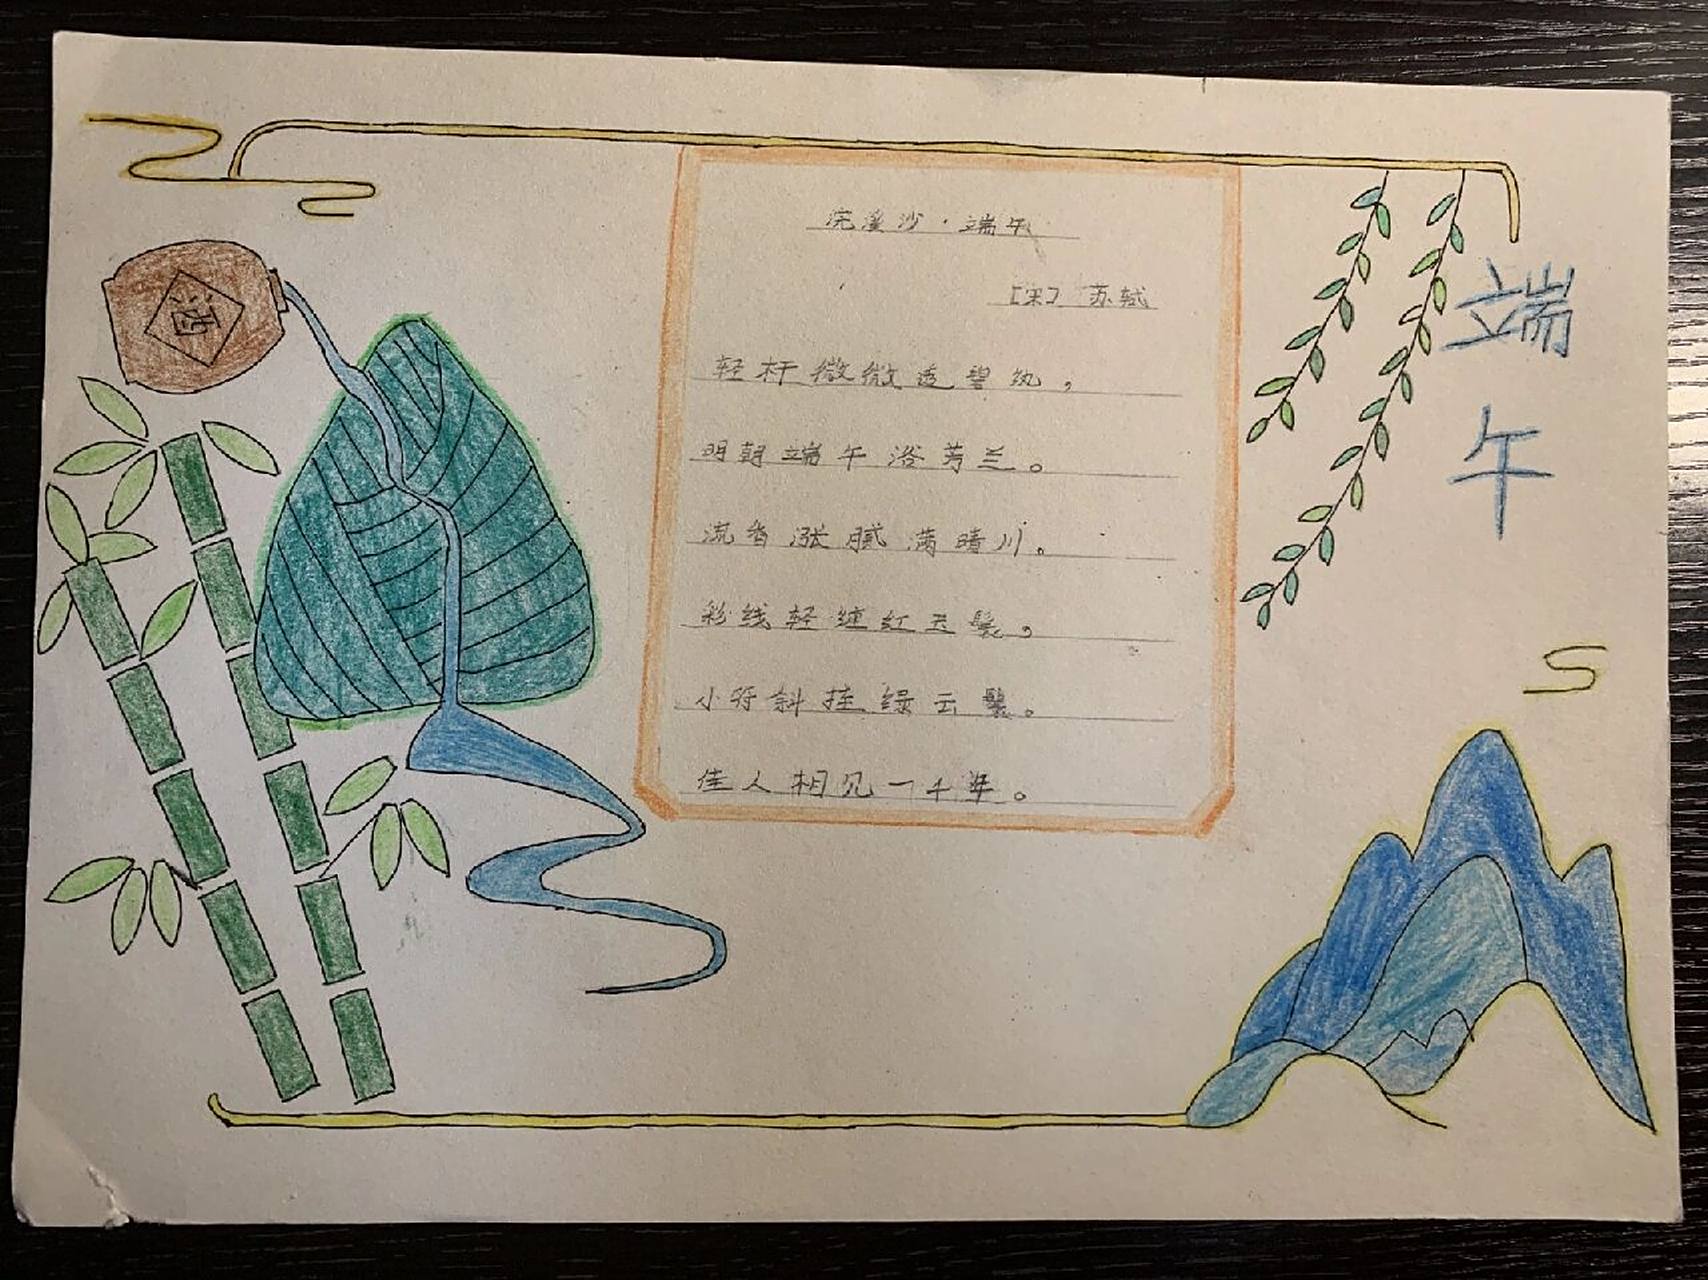 浣溪沙·端午
[宋] 苏轼
轻杆微微透碧纨，
明朝端午浴芳兰。
流香涨腻满晴川。
彩线轻缠红玉，
小符斜挂绿云鬟。
佳人相见一千年。
端午
酒